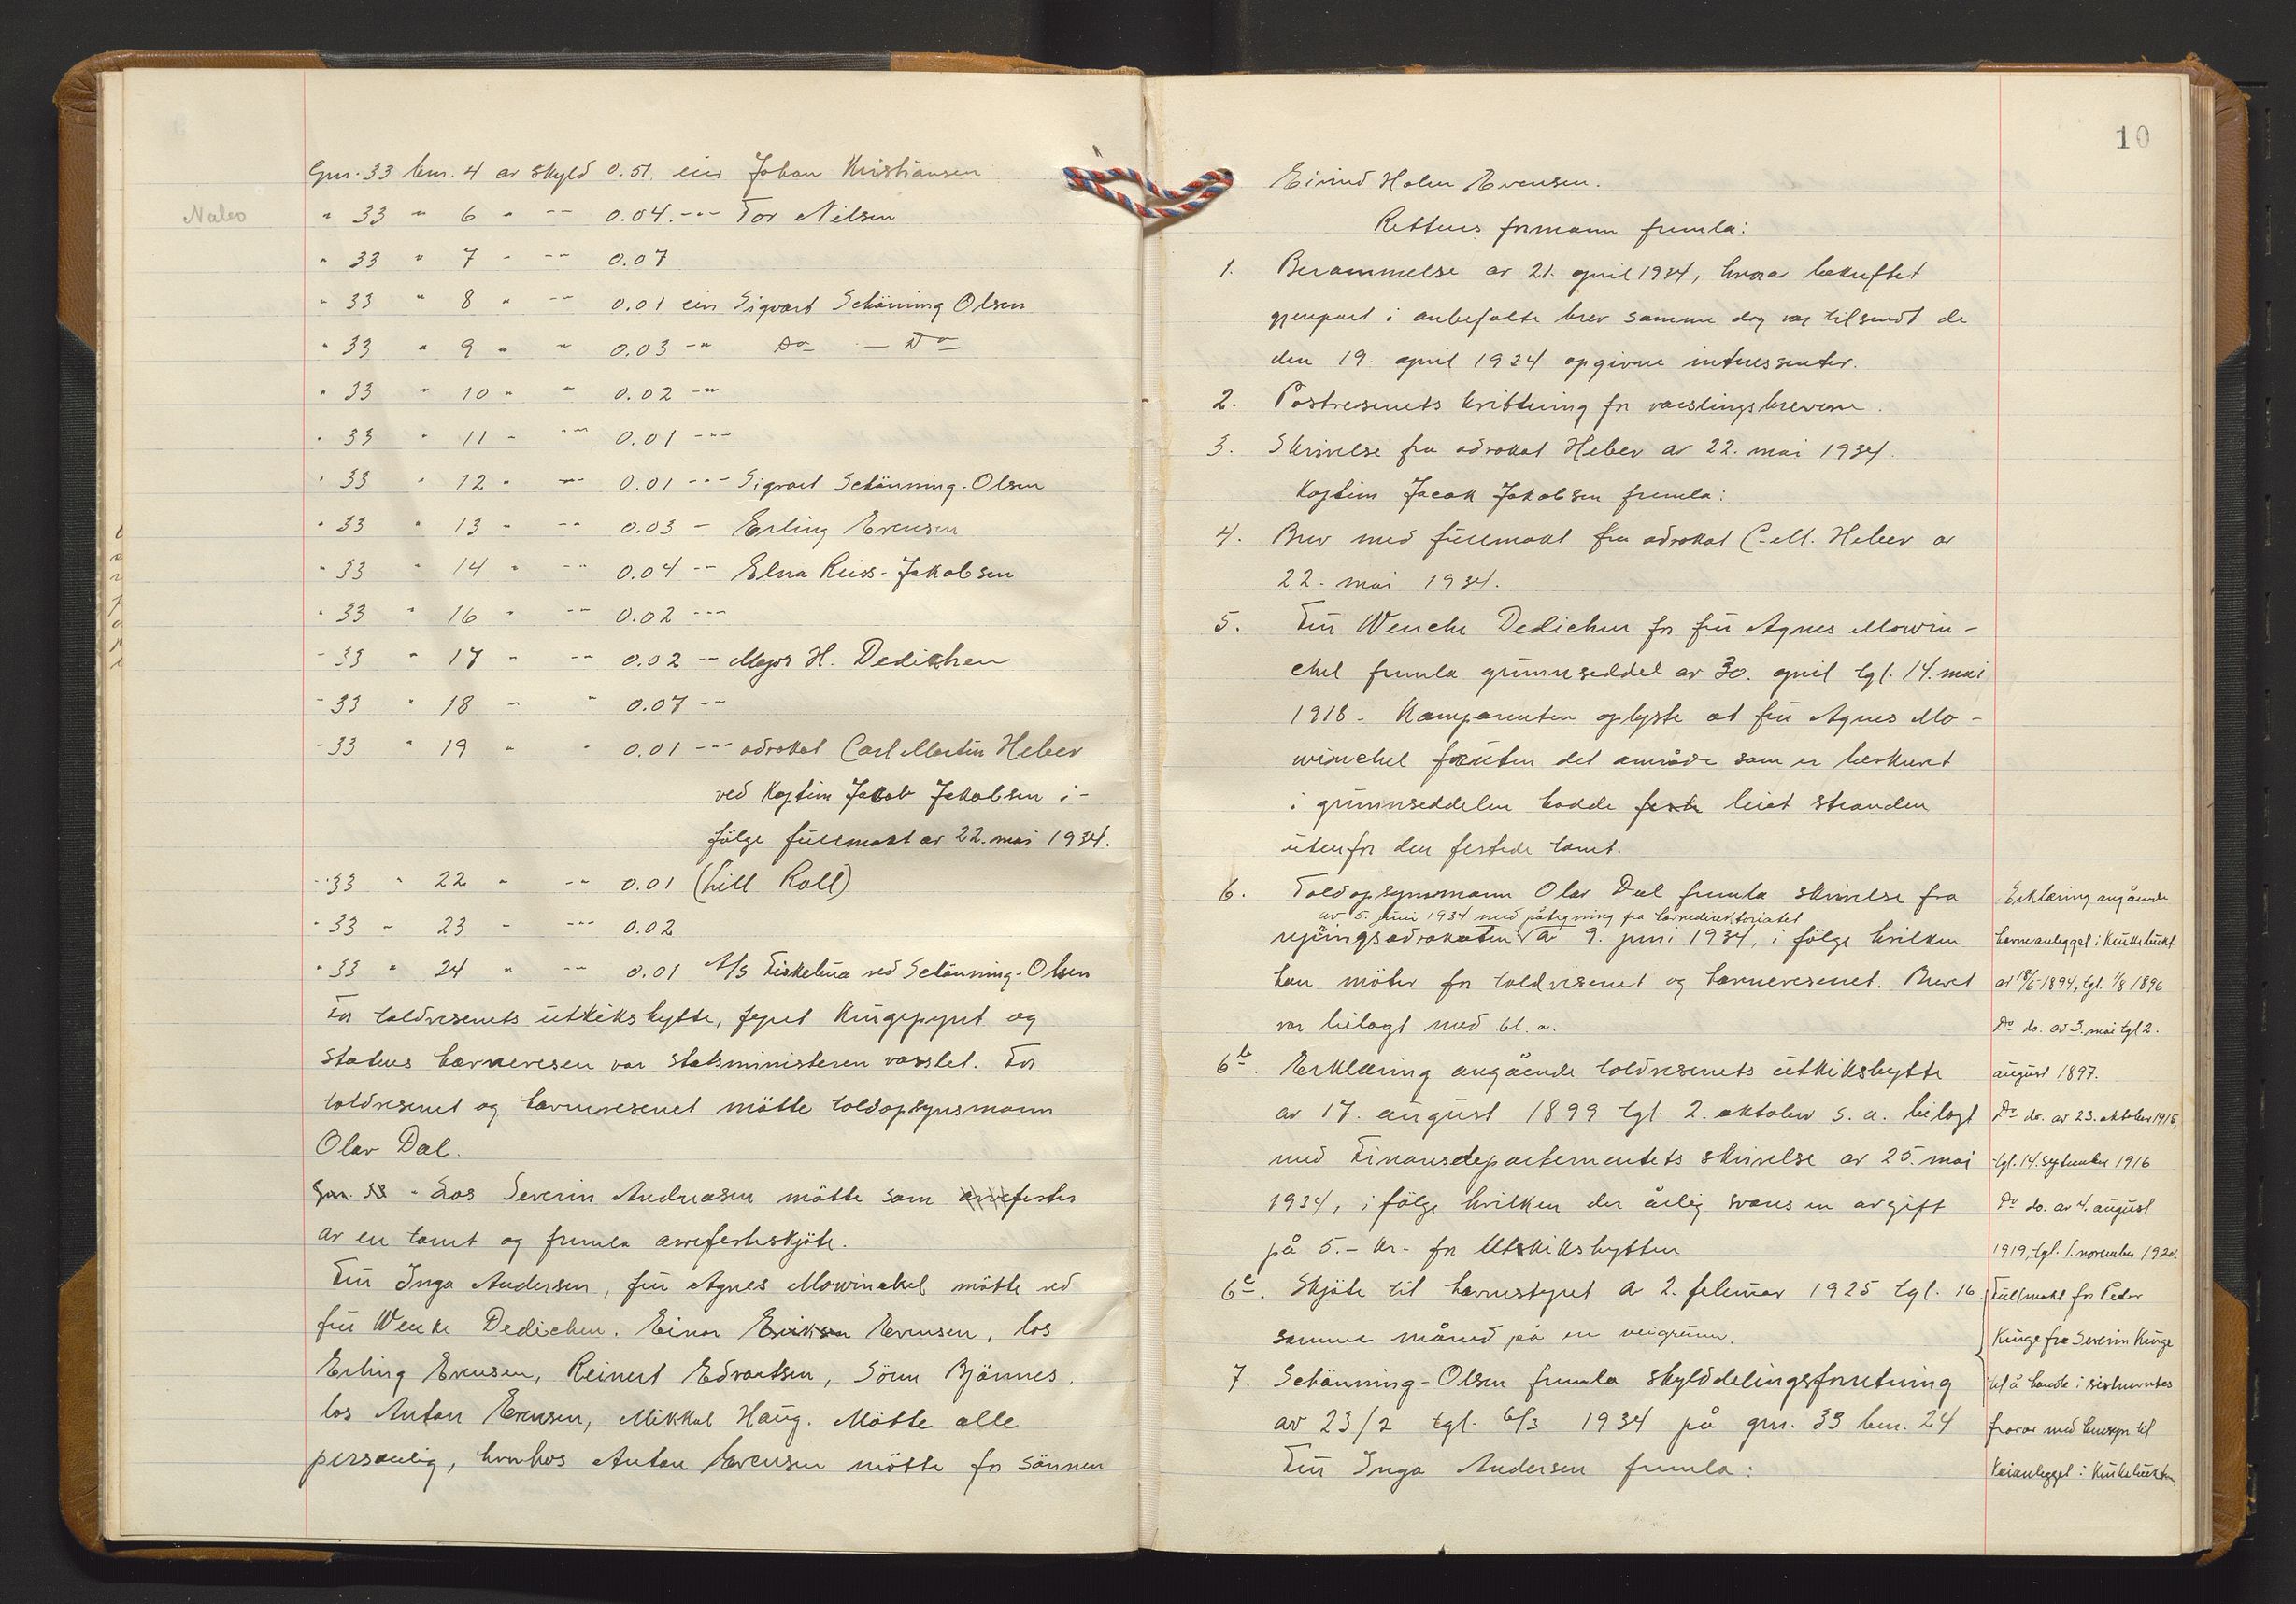 Gnr. 33 bnr. 4 av skyld 0.51 eier Johan Kristiansen
Nabo
" 33 " 6 " -- 0.04 --- Tor Nilsen
" 33 " 7 " -- 0.07
" 33 " 8 " -- 0.01 eier Sigvart Schönning Olsen
" 33 " 9 " " 0.03 -" Do — Do
" 33 " 10 " " 0.02 -"
" 33 " 11 " --- 0.01 ---
" 33 " 12 " --- 0.01 --- Sigvart Schönning-Olsen
" 33 " 13 " -- 0.03 - Erling Evensen
" 33 " 14 " -- 0.04 -- Elna Reiss-Jakobsen
" 33 " 16 " -- 0.02 ---
" 33 " 17 " -- 0.02 -- Major H. Dedichen
" 33 " 18 " " 0.07 --
" 33 " 19 " " 0.01 --- advokat Carl Martin Heber
ved Kaptein Jakob Jakobsen i-
følge fullmakt av 22. mai 1934.
" 33 " 22 " -- 0.01 (till Roll)
" 33 " 23 " --- 0.02
" 33 " 24 " -- 0.01 A/S Fiskebua ved Schönning-Olsen
For toldvesenets utkikshytte, fyret Kingepynt og
statens havnevesen var statsministeren varslet. For
toldvesenet og havnevesenet mötte toldopsynsmann
Olav Dal.
Los Severin Andreasen mötte som fester
av en tomt og fremla arvefesteskjöte.
Fru Inga Andersen, fru Agnes Mowinckel mötte ved
fru Wenke Dedichen. Einar Eriksen Evensen, los
Erling Evensen, Reinert Edvartsen, Sörn Bjönnes,
los Anton Evensen, Mikkel Haug. Mötte alle
personlig, hvorhos Anton Evensen mötte for sönnen
10
Eivind Holm Evensen.
Rettens formann fremla:
1. Berammelse av 21. april 1934, hvorav bekreftet
gjenpart i anbefalte brev samme dag var tilsendt de
den 19. april 1934 opgivne interessenter.
2. Postvesenets kvittering for varslingsbrevene.
3. Skrivelse fra advokat Heber av 22. mai 1934.
Kaptein Jacob Jakobsen fremla:
4. Brev med fullmakt fra advokat C. M. Heber av
22. mai 1934.
5. Fru Wenche Dedichen for fru Agnes Mowin-
ckel fremla grunnseddel av 30. april tgl. 14. mai
1918. Komparenten oplyste at fru Agnes Mo-
winckel foruten det område som er beskrevet
i grunnseddelen hadde feste leiet stranden
utenfor den festede tomt.
6. Toldopsynsmann Olav Dal fremla skrivelse fra
av 5. juni 1934 med påtegning fra havnedirektoriatet
regjeringsadvokaten av 9. juni 1934, i følge hvilken
han möter for toldvesenet og havnevesenet. Brevet
var bilagt med bl. a.
6b. Erklæring angående toldvesenets utkikshytte
av 17. august 1899 tgl. 2. oktober s. a. bilagt
med Finansdepartementets skrivelse av 25. mai
1934, i følge hvilken der årlig svares en avgift
på 5.- kr. for Utkikshytten
6c. Skjöte til havnestyret av 2. februar 1925 tgl. 16.
samme måned på en veigrunn.
7. Schönning-Olsen fremla skylddelingsforretning
av 23/2 tgl. 6/3 1934 på gnr. 33 bnr. 24
Fru Inga Andersen fremla:
Erklæring angående
havneanlegget i Kirkebukt
av 18/5 1894, tgl. 1/8 1896
Do do. av 3. mai tgl 2.
august 1897.
Do do. av 23. oktober 1915,
tgl. 14. september 1916
Do do. av 4. august
1919, tgl. 1. november 1920.
Fullmakt for Peder
Kinge fra Severin Kinge
til å handle i sistnevntes
fravær med hensyn til
Kaianlegget i Kirkebukten.